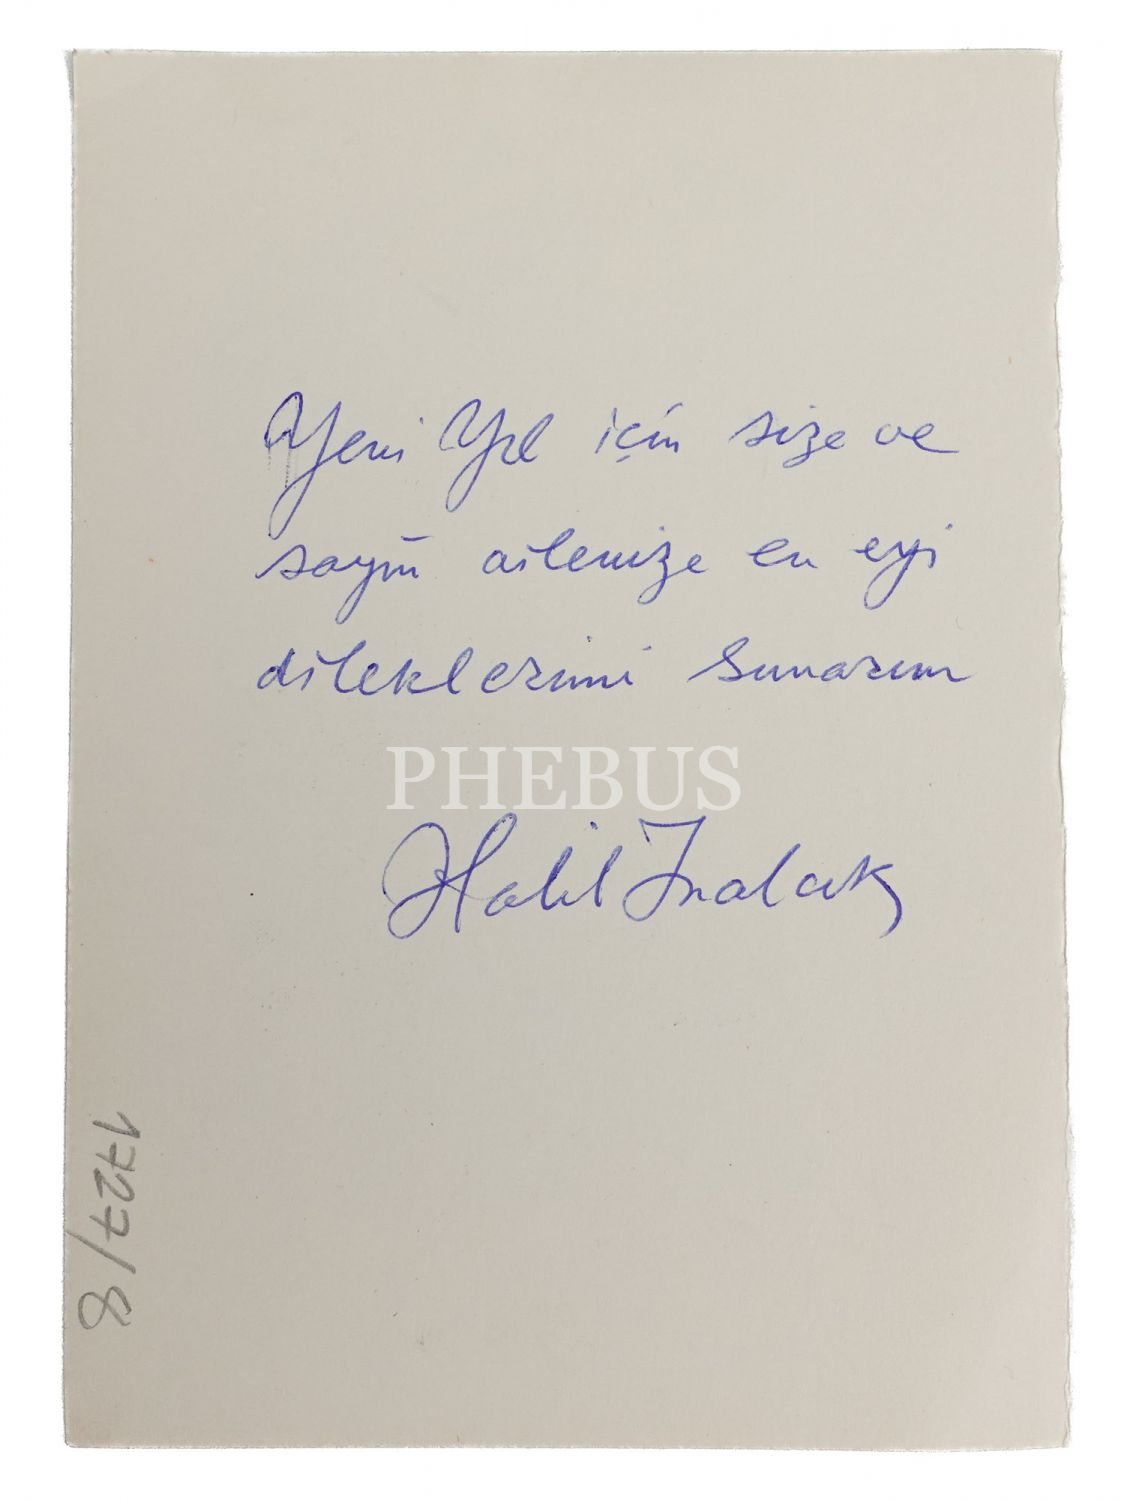 Yeni Yıl için size ve
sayın ailenize en eyi
dileklerimi sunarım
PHEBUS
Halil İnalcık
1727/8